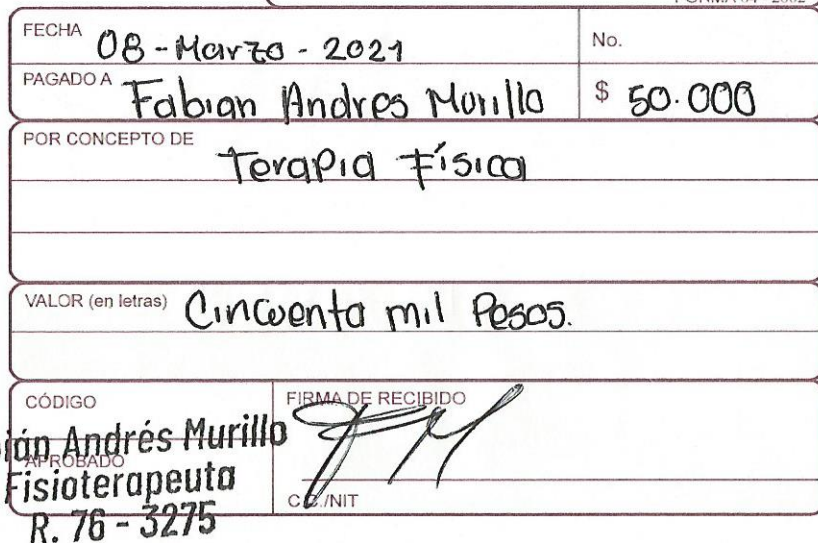 FORMA 04 - 2002
FECHA 08-Marzo-2021 No.
PAGADO A Fabian Andres Murillo $ 50.000
POR CONCEPTO DE Terapia Física
VALOR (en letras) Cincuenta mil Pesos.
CÓDIGO FIRMA DE RECIBIDO
ián Andrés Murillo
APROBADO
Fisioterapeuta
C.C./NIT
R. 76 - 3275